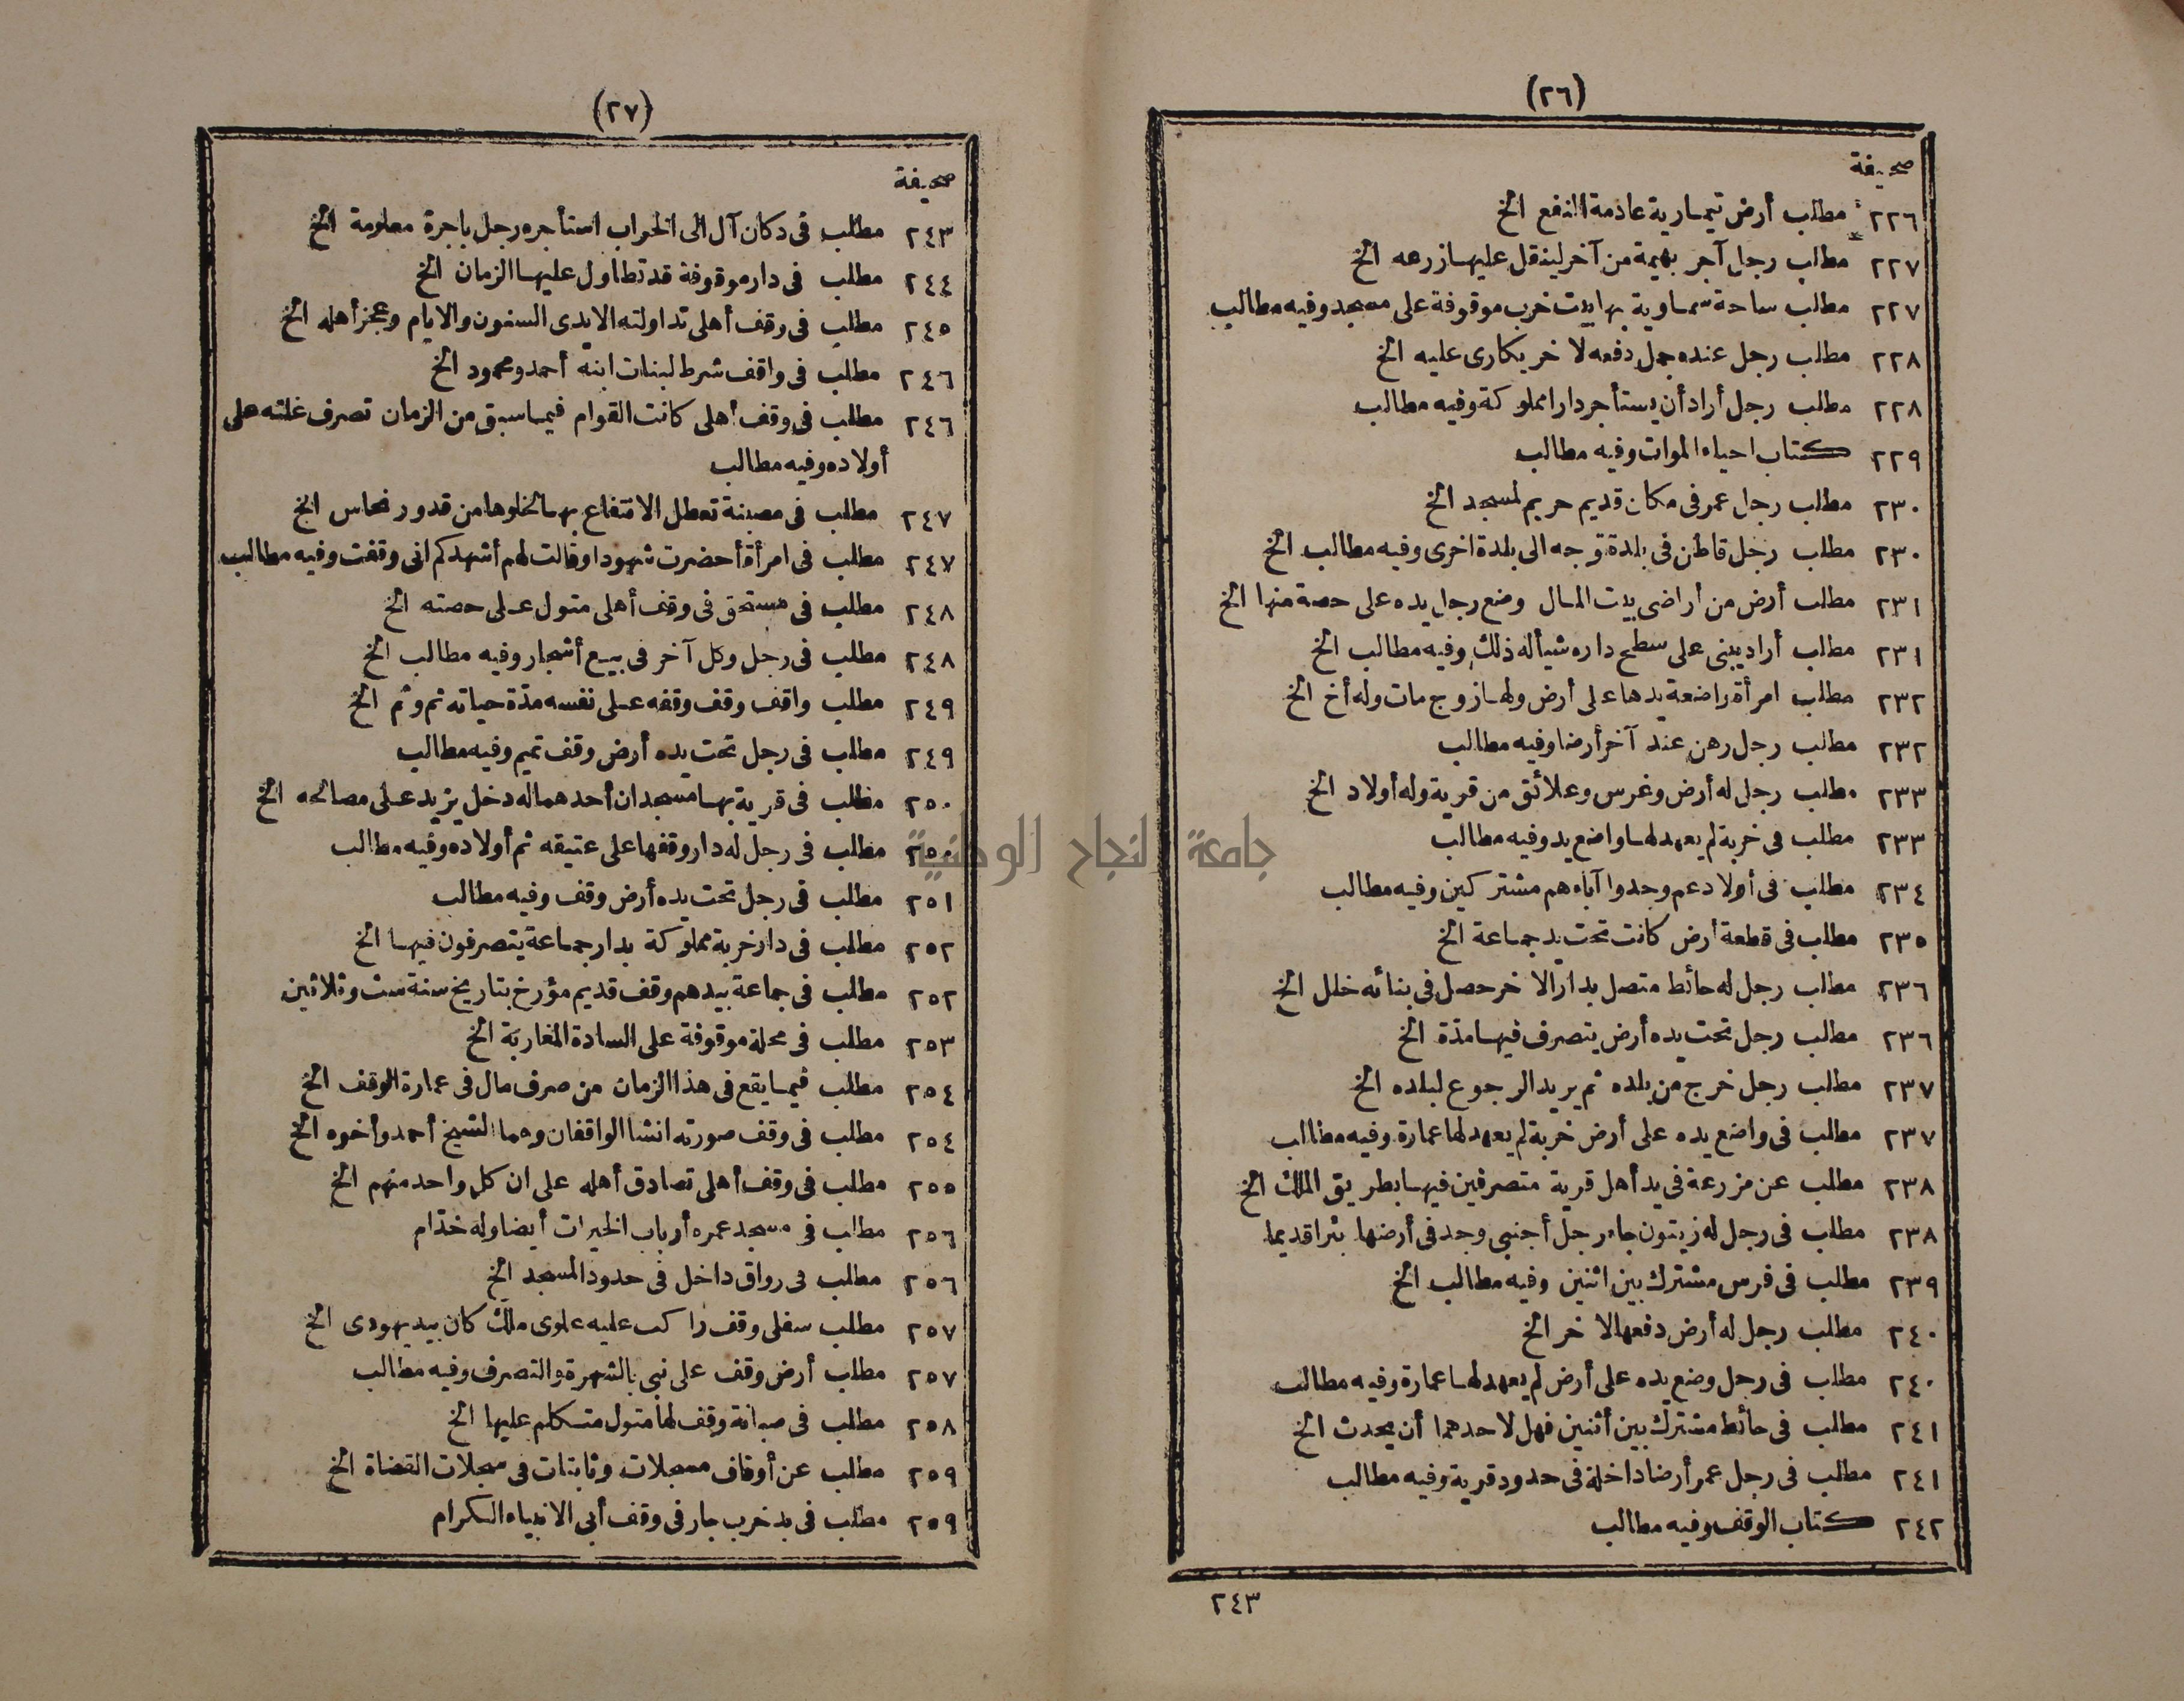 (٢٦)
صحيفة
٢٢٦ مطلب أرض تيمارية عادمة النفع الخ
٢٢٧ مطلب رجل آجر بهيمة من آخر لينقل عليها زرعه الخ
٢٢٧ مطلب ساحة سماوية بها بيت خرب موقوفة على مسجد وفيه مطالب
٢٢٨ مطلب رجل عنده جمل دفعه لآخر يكارى عليه الخ
٢٢٨ مطلب رجل أراد أن يستأجر دارا مملوكة وفيه مطالب
٢٢٩ كتاب احياء الموات وفيه مطالب
٢٣٠ مطلب رجل عمر فى مكان قديم حريم لمسجد الخ
٢٣٠ مطلب رجل قاطن فى بلدة توجه الى بلدة اخرى وفيه مطالب الخ
٢٣١ مطلب أرض من أراضى بيت المال وضع رجل يده على حصة منها الخ
٢٣١ مطلب أراد يبنى على سطح داره شيأ له ذلك وفيه مطالب الخ
٢٣٢ مطلب امرأة راضعة يدها على أرض ولها زوج مات وله أخ الخ
٢٣٢ مطلب رجل رهن عند آخر أرضا وفيه مطالب
٢٣٣ مطلب رجل له أرض وغرس وعلائق من قرية وله أولاد الخ
٢٣٣ مطلب فى خربة لم يعهد لها واضع يد وفيه مطالب
٢٣٤ مطلب فى أولاد عم وجدوا آباءهم مشتركين وفيه مطالب
٢٣٥ مطلب فى قطعة أرض كانت تحت يد جماعة الخ
٢٣٦ مطلب رجل له حائط متصل بدار الآخر حصل فى بنائه خلل الخ
٢٣٦ مطلب رجل تحت يده أرض يتصرف فيها مدّة الخ
٢٣٧ مطلب رجل خرج من بلده ثم يريد الرجوع لبلده الخ
٢٣٧ مطلب فى واضع يده على أرض خربة لم يعهد لها عمارة وفيه مطالب
٢٣٨ مطلب عن مزرعة فى يد أهل قرية متصرفين فيها بطريق الملك الخ
٢٣٨ مطلب فى رجل له زيتون جاء رجل أجنبى وجد فى أرضها بئرا قديما
٢٣٩ مطلب فى فرس مشترك بين اثنين وفيه مطالب الخ
٢٤٠ مطلب رجل له أرض دفعها لآخر الخ
٢٤٠ مطلب فى رجل وضع يده على أرض لم يعهد لها عمارة وفيه مطالب
٢٤١ مطلب فى حائط مشترك بين أثنين فهل لاحدهما أن يحدث الخ
٢٤١ مطلب فى رجل عمر أرضا داخلة فى حدود قرية وفيه مطالب
٢٤٢ كتاب الوقف وفيه مطالب
٢٤٣
(٢٧)
صحيفة
٢٤٣ مطلب فى دكان آل الى الخراب استأجره رجل باجرة معلومة الخ
٢٤٤ مطلب فى دار موقوفة قد تطاول عليها الزمان الخ
٢٤٥ مطلب فى وقف أهلى تداولته الايدى السنون والايام وعجز أهله الخ
٢٤٦ مطلب فى واقف شرط لبنات ابنه أحمد ومحمود الخ
٢٤٦ مطلب فى وقف أهلى كانت القوام فيما سبق من الزمان تصرف غلته على
أولاده وفيه مطالب
٢٤٧ مطلب فى مصبنة تعطل الانتفاع بها لخلوها من قدور نحاس الخ
٢٤٧ مطلب فى امرأة أحضرت شهودا وقالت لهم أشهدكم انى وقفت وفيه مطالب
٢٤٨ مطلب فى مستحق فى وقف أهلى متول على حصته الخ
٢٤٨ مطلب فى رجل وكل آخر فى بيع أشجار وفيه مطالب الخ
٢٤٩ مطلب واقف وقف وقفه على نفسه مدّة حياته ثم وثم الخ
٢٤٩ مطلب فى رجل تحت يده أرض وقف تميم وفيه مطالب
٢٥٠ مطلب فى قرية بها مسجدان أحدهما له دخل يزيد على مصالحه الخ
٢٥٠ مطلب فى رجل له دار وقفها على عتيقه ثم أولاده وفيه مطالب
٢٥١ مطلب فى رجل تحت يده أرض وقف وفيه مطالب
٢٥٢ مطلب فى دار خربة مملوكة بدار جماعة يتصرفون فيها الخ
٢٥٢ مطلب فى جماعة بيدهم وقف قديم مؤرخ بتاريخ سنة ست وثلاثين
٢٥٣ مطلب فى محلة موقوفة على السادة المغاربة الخ
٢٥٤ مطلب فيما يقع فى هذا الزمان من صرف مال فى عمارة الوقف الخ
٢٥٤ مطلب فى وقف صورته انشا الواقفان وهما الشيخ أحمد وأخوه الخ
٢٥٥ مطلب فى وقف أهلى تصادق أهله على ان كل واحد منهم الخ
٢٥٦ مطلب فى مسجد عمره أرباب الخيرات أيضا وله خدّام
٢٥٦ مطلب فى رواق داخل فى حدود المسجد الخ
٢٥٧ مطلب سفلى وقف راكب عليه علوى ملك كان بيد يهودى الخ
٢٥٧ مطلب أرض وقف على نبى بالشهرة والتصرف وفيه مطالب
٢٥٨ مطلب فى صبانة وقف لها متول متكلم عليها الخ
٢٥٩ مطلب عن أوقاف مسجلات وثابتات فى سجلات القضاة الخ
٢٥٩ مطلب فى بد خرب جار فى وقف أبى الانبياء الكرام
جامعة النجاح الوطنية